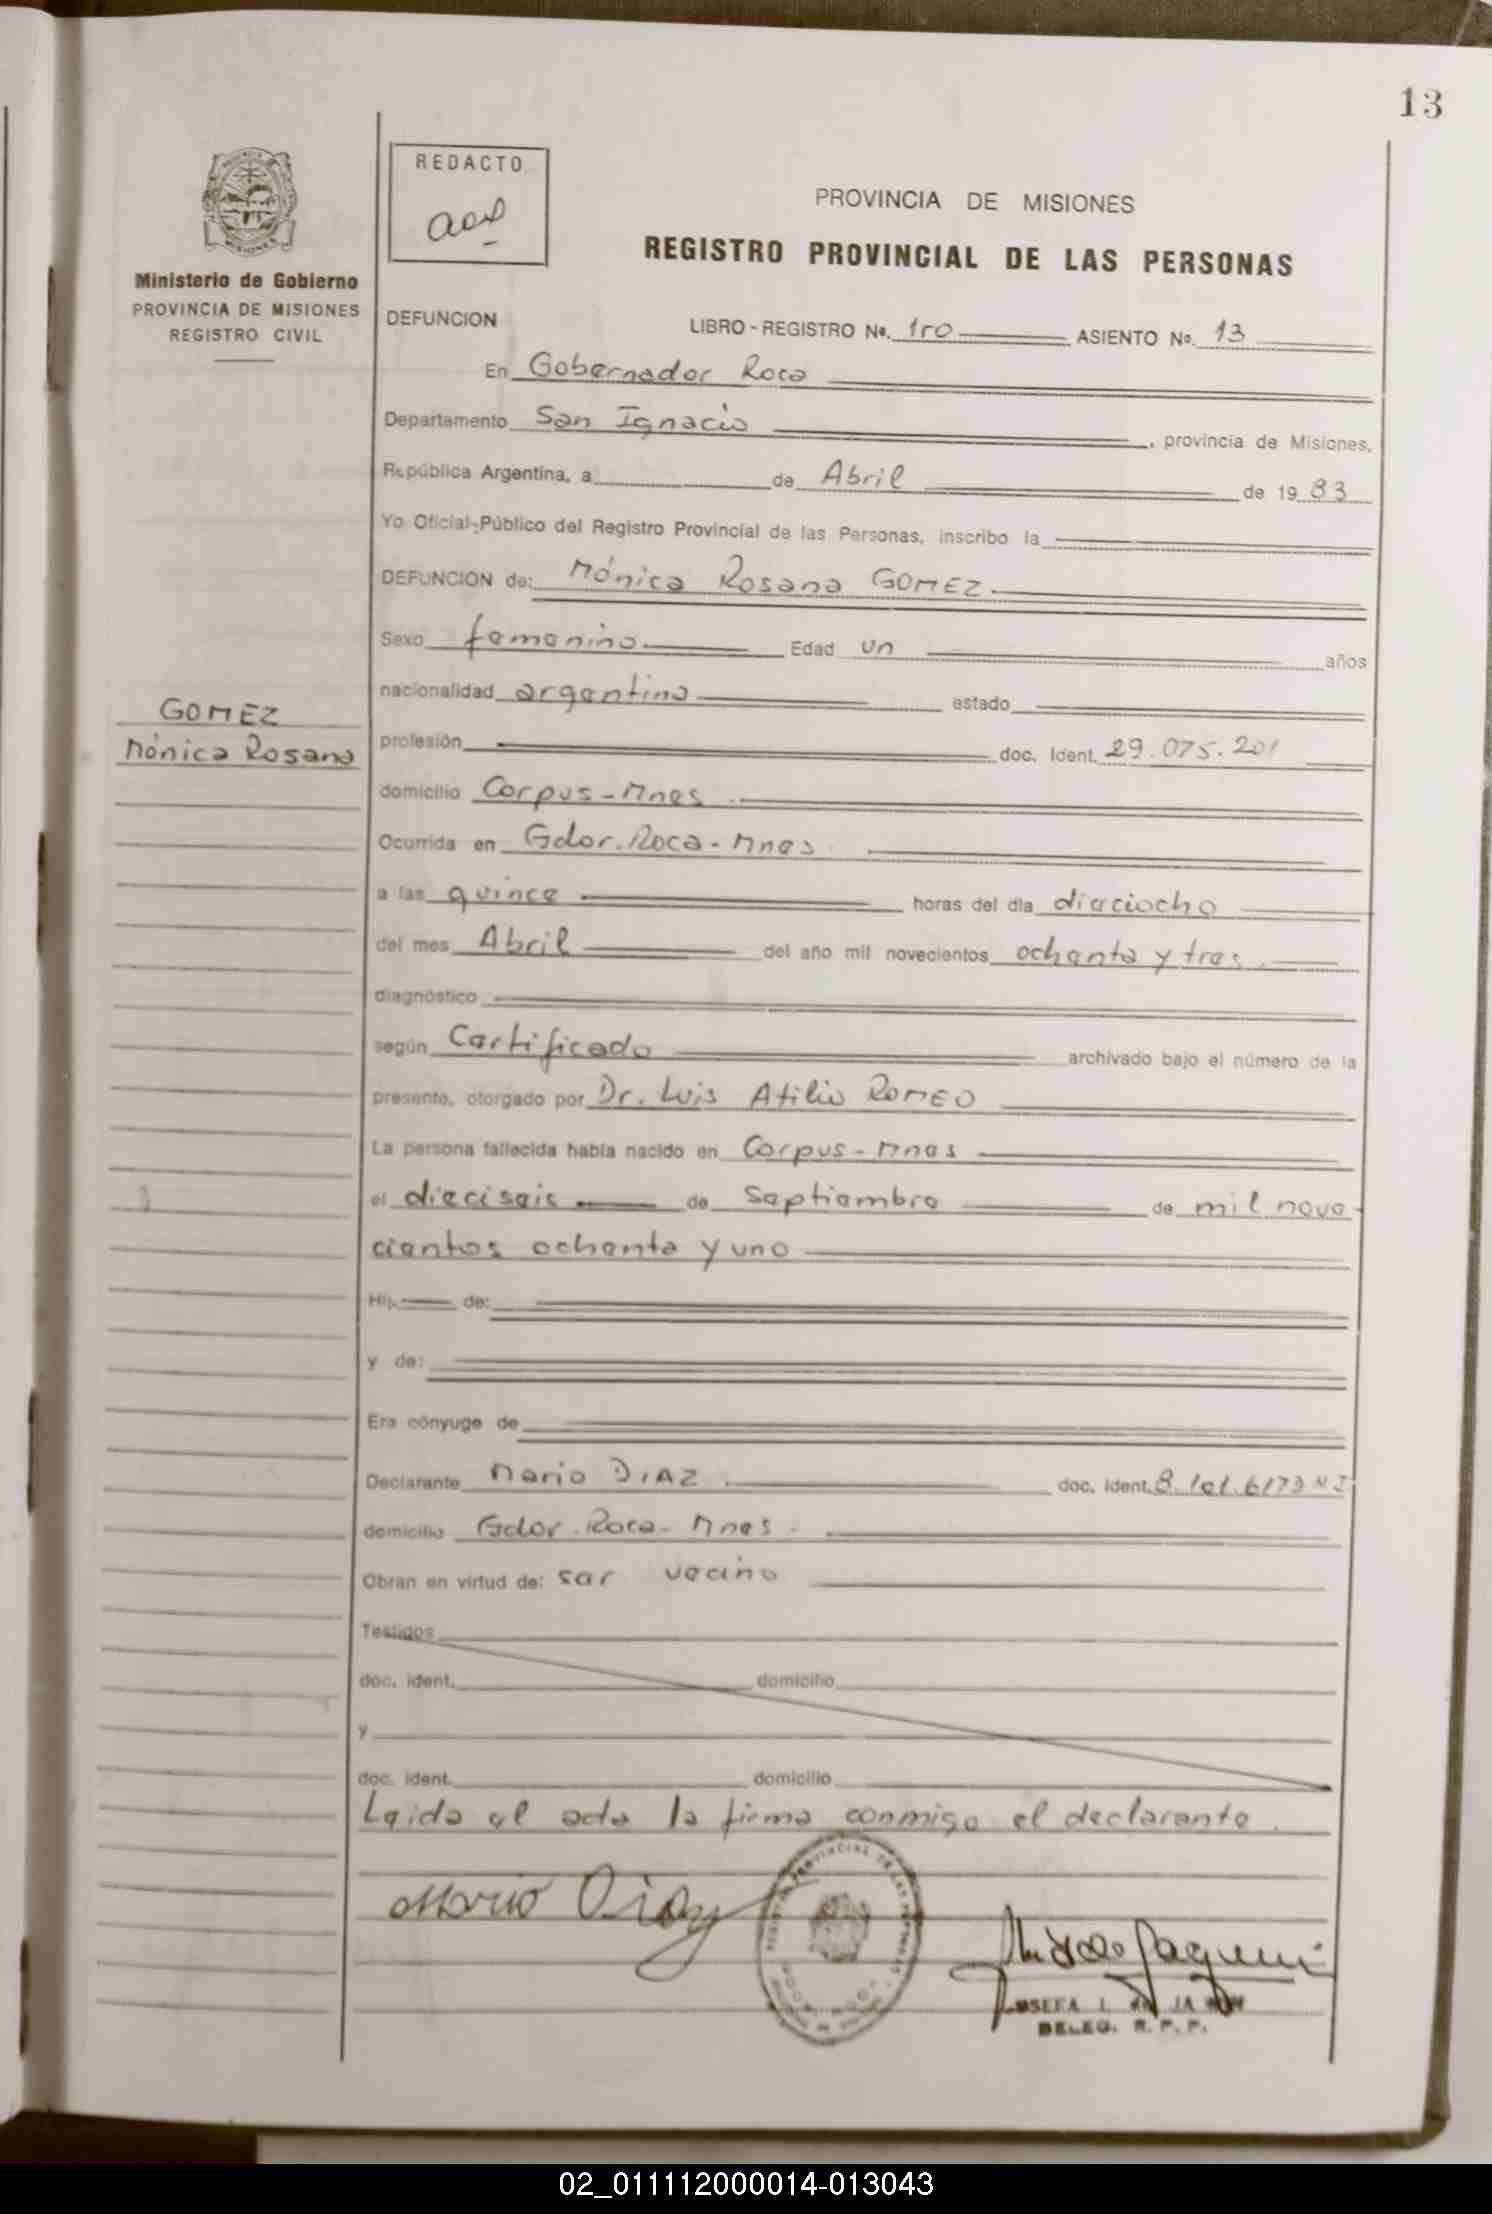 13
REDACTO
PROVINCIA DE MISIONES
REGISTRO PROVINCIAL DE LAS PERSONAS
Ministerio de Gobierno
PROVINCIA DE MISIONES
REGISTRO CIVIL
DEFUNCION LIBRO - REGISTRO No. 1ro ASIENTO No. 13
En Gobernador Roca
Departamento San Ignacio, provincia de Misiones,
República Argentina, a de Abril de 19 83
Yo Oficial Público del Registro Provincial de las Personas, inscribo la
DEFUNCION de: Mónica Rosana GOMEZ
Sexo femenino Edad un años
nacionalidad argentina estado
GOMEZ
Mónica Rosana
profesión doc. Ident. 29.075.201
domicilio Corpus-Mnes
Ocurrida en Gdor. Roca-Mnes.
a las quince horas del día dieciocho
del mes Abril del año mil novecientos ochenta y tres
diagnóstico
según Certificado archivado bajo el número de la
presente, otorgado por Dr. Luis Atilio ROMEO
La persona fallecida había nacido en Corpus-Mnes
el dieciseis de Septiembre de mil nove-
cientos ochenta y uno
Hij de:
y de:
Era cónyuge de
Declarante Mario DIAZ doc. Ident.
domicilio Gdor. Roca-Mnes.
Obran en virtud de: ser vecino
Testigos
doc. ident. domicilio
y
doc. ident. domicilio
Leida el acta la firma conmigo el declarante.
Mario Diaz
DELEG. R. P. P.
02_011112000014-013043